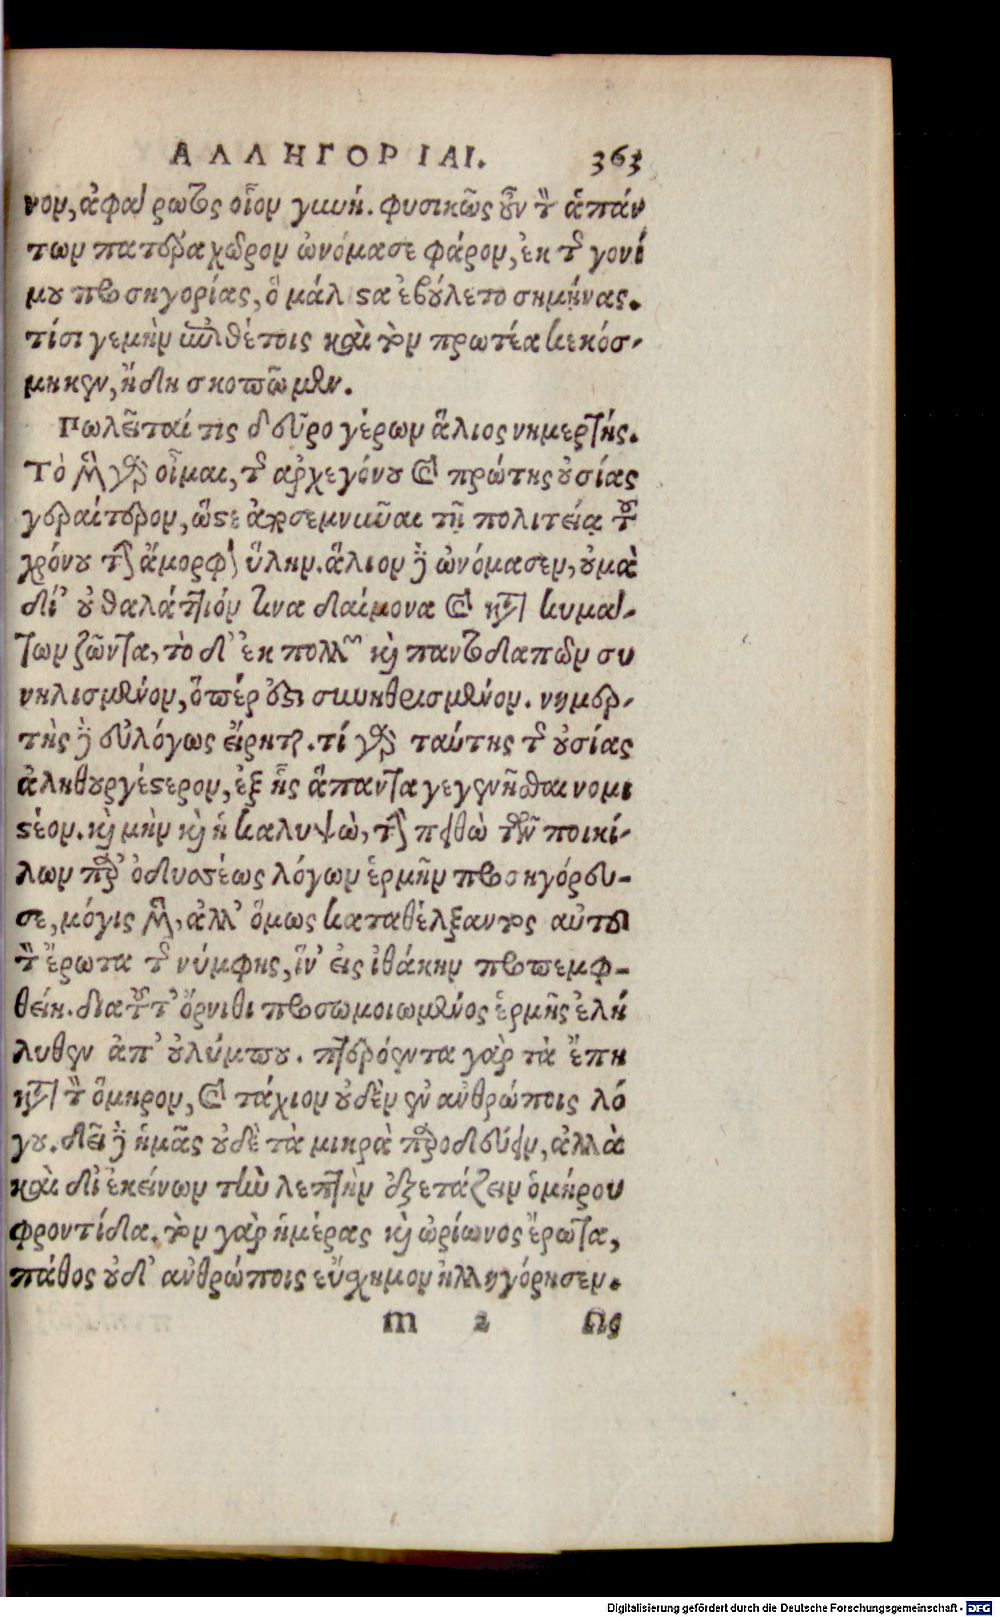 ΑΛΛΗΓΟΡΙΑΙ. 363
νον, ἀφαίρωτος οἷον γυνή. φυσικῶς οὖν τὸν ἁπάν
των πατέρα χῶρον ὠνόμασε φάρον, ἐκ τῆς γονί
μου προσηγορίας, ὃ μάλιστα ἐβούλετο σημῄνας.
τίσι γεμὴν ἐπιθέτοις καὶ τὸν πρωτέα κεκόσ-
μηκεν, ἤδη σκοπῶμεν.
Πωλεῖταί τις δεῦρο γέρων ἅλιος νημερτής.
Τὸ μὲν γὰρ οἶμαι, τῆς αρχεγόνου καὶ πρώτης οὐσίας
γεραίτερον, ὥστε ἀποσεμνῦναι τῇ πολιτείᾳ τοῦ
χρόνου τὴν ἄμορφον ὕλην. ἅλιον δὲ ὠνόμασεν, οὐμὰ
δί' οὐ θαλάττιόν τινα δαίμονα καὶ κατὰ κυμά-
των ζῶντα, τὸ δ' ἐκ πολλῶν καὶ παντοδαπῶν συ
νηλισμένον, ὅπέρ ἐστι συνηθροισμένον. νημερ-
τὴς δὲ εὐλόγως εἴρηται. τί γὰρ ταύτης τῆς οὐσίας
ἀληθουργέστερον, ἐξ ἧς ἅπαντα γεγενῆσθαι νομι
στέον. καὶ μὴν καὶ ἡ καλυψὼ, τὴν πειθὼ τῶν ποικί-
λων παρ' ὀδυσσέως λόγων ἑρμῆν προσηγόρευ-
σε, μόγις μὲν, ἀλλ' ὅμως καταθέλξαντος αὐτοῦ
τὸν ἔρωτα τῆς νύμφης, ἵν' εἰς ἰθάκην προπεμφ-
θείη. διατοῦτ' ὄρνιθι προσωμοιωμένος ἑρμῆς ἐλή
λυθεν ἀπ' οὐλύμπου. πτερόεντα γὰρ τὰ ἔπη
κατὰ τὸν ὅμηρον, καὶ τάχιον οὐδὲν ἐν ἀνθρώποις λό
γου. δεῖ δὲ ἡμᾶς οὐδὲ τὰ μικρὰ παροδεύειν, ἀλλὰ
καὶ δι' ἐκείνων τὴν λεπτὴν ἐξετάζειν ὁμήρου
φροντίδα. τὸν γὰρ ἡμέρας καὶ ὠρίωνος ἔρωτα,
πάθος οὐδ' ἀνθρώποις εὔσχημον ἠλληγόρησεν.
m 2 Ως
Digitalisierung gefördert durch die Deutsche Forschungsgemeinschaft - DFG